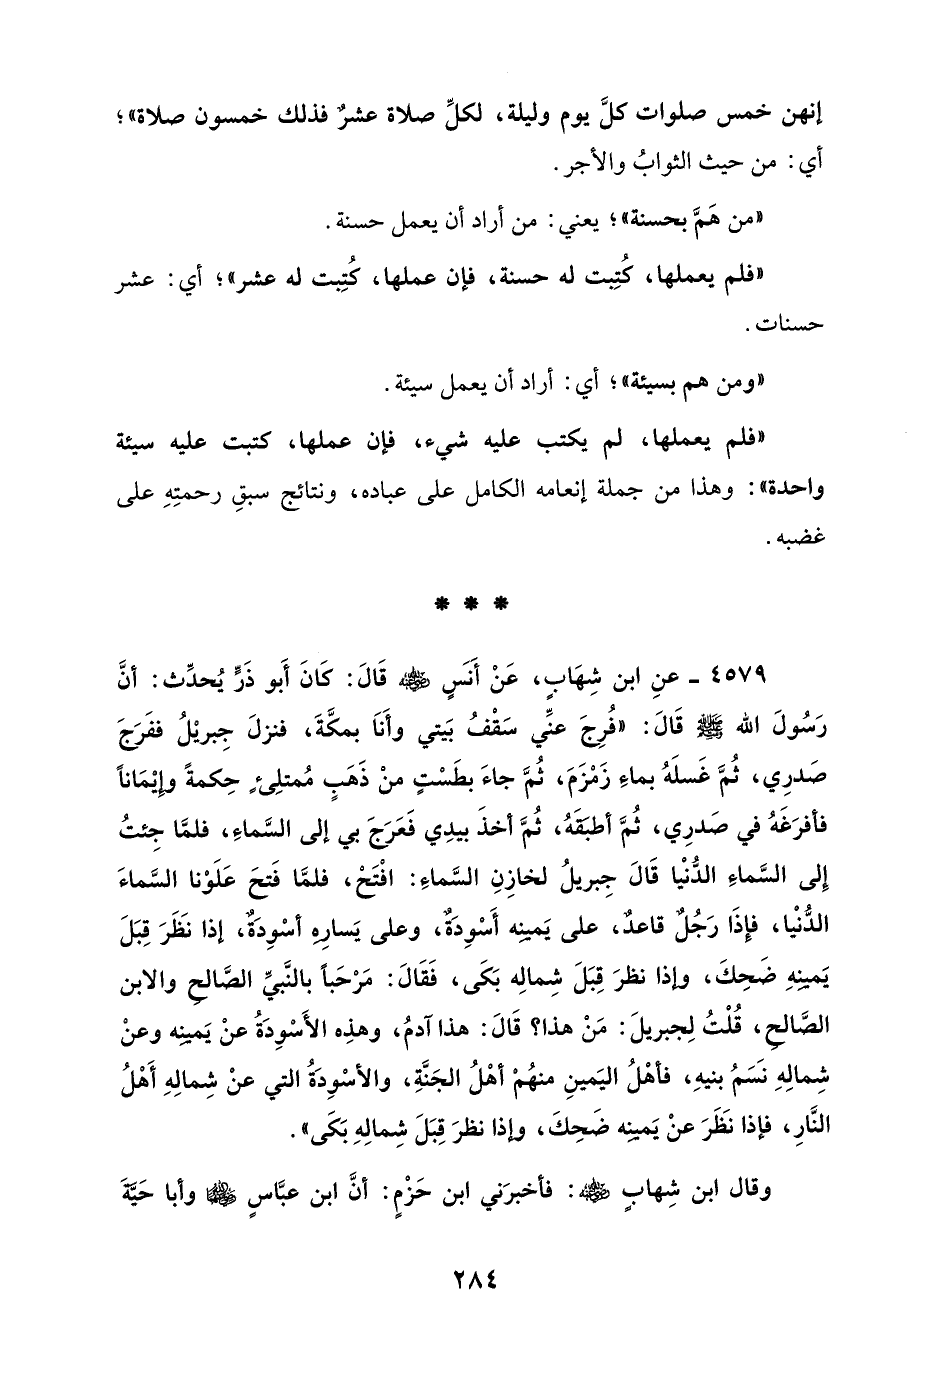 إنهن خمس صلوات كلَّ يوم وليلة، لكلِّ صلاة عشرٌ فذلك خمسون صلاة»؛
أي: من حيث الثوابُ والأجر.
«من هَمَّ بحسنة»؛ يعني: من أراد أن يعمل حسنة.
«فلم يعملها، كُتِبت له حسنة، فإن عملها، كُتِبت له عشر»؛ أي: عشر
حسنات.
«ومن هم بسيئة»؛ أي: أراد أن يعمل سيئة.
«فلم يعملها، لم يكتب عليه شيء، فإن عملها، كتبت عليه سيئة
واحدة»: وهذا من جملة إنعامه الكامل على عباده، ونتائج سبقِ رحمتِهِ على
غضبه.
* * *
٤٥٧٩ - عنِ ابن شِهَابٍ، عَنْ أَنَسٍ ﵁ قَالَ: كَانَ أَبو ذَرٍّ يُحدِّث: أنَّ
رَسُولَ الله ﷺ قَالَ: «فُرِجَ عنِّي سَقْفُ بَيتي وأنَا بمكَّةَ، فنزلَ جِبريْلُ ففَرَجَ
صَدرِي، ثُمَّ غَسلَهُ بماءِ زَمْزَمَ، ثُمَّ جاءَ بطَسْتٍ منْ ذَهَبٍ مُمتلِئٍ حِكمةً وإيْمَاناً
فأفرَغَهُ في صَدرِي، ثُمَّ أطبَقَهُ، ثُمَّ أخذَ بيدِي فَعَرَجَ بي إلى السَّماءِ، فلمَّا جِئتُ
إلى السَّماءِ الدُّنْيا قَالَ جِبريلُ لخازِنِ السَّماءِ: افْتَحْ، فلمَّا فَتحَ عَلَوْنا السَّماءَ
الدُّنْيا، فإِذَا رَجُلٌ قاعدٌ، على يَمينِه أَسْوِدَةٌ، وعلى يَسارِهِ أسْوِدَةٌ، إذا نَظَرَ قِبَلَ
يَمينِهِ ضَحِكَ، وإذا نظرَ قِبَلَ شِمالِه بَكَى، فَقَالَ: مَرْحَباً بالنَّبيِّ الصَّالحِ والابن
الصَّالحِ، قُلْتُ لِجبريلَ: مَنْ هذا؟ قَالَ: هذا آدمُ، وهذِه الأَسْوِدَةُ عنْ يَمينِه وعنْ
شِمالِهِ نَسَمُ بنيهِ، فأهْلُ اليَمينِ منهُمْ أهْلُ الجَنَّةِ، والأسْوِدَةُ التي عنْ شِمالِهِ أَهْلُ
النَّارِ، فإذا نَظَرَ عنْ يَمينِه ضَحِكَ، وإذا نظرَ قِبَلَ شِمالِهِ بَكَى».
وقال ابن شِهابٍ ﵁: فأخبرَني ابن حَزْمٍ: أنَّ ابن عبَّاسٍ ﵄ وأبا حَيَّةَ
٢٨٤